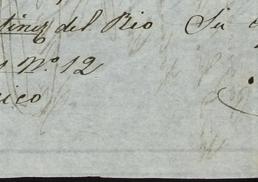 tinez del Rio Su
Nº. 12
ico